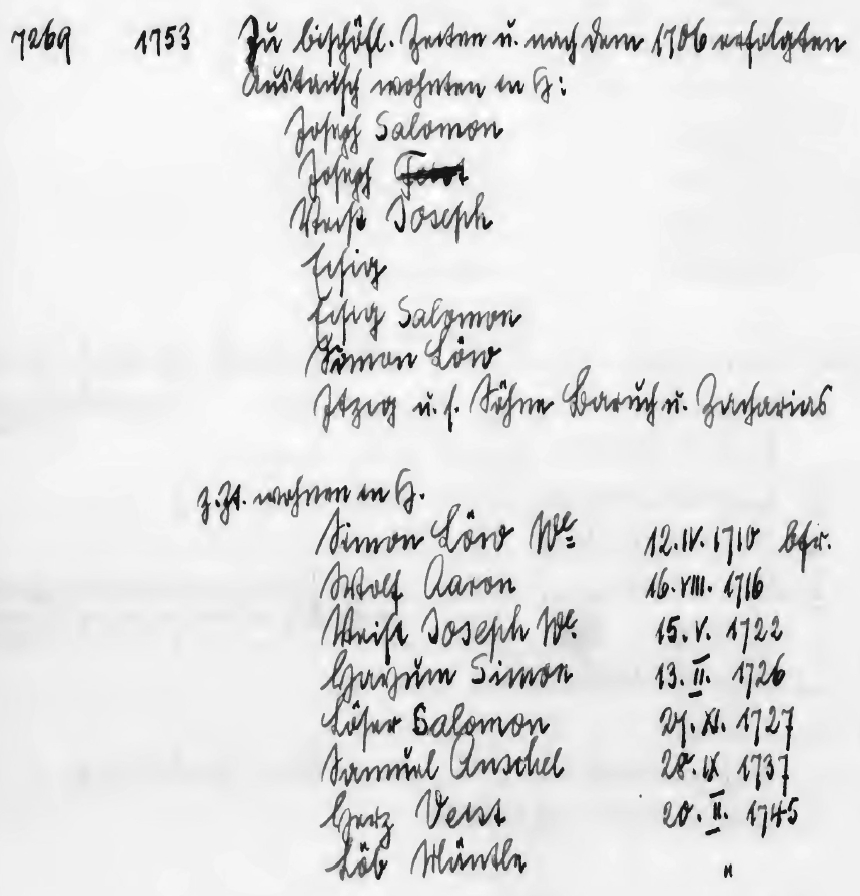 7269 1753 Zu bischöfl. Zeiten u. nach dem 1706 erfolgten
Austausch wohnten in H:
Joseph Salomon
Joseph
Veist Joseph
Eisig
Eisig Salomon
Simon Löw
Itzig u. s. Söhne Baruch u. Zacharias
z. Zt. wohnen in H.
Simon Löw We 12.IV.1710 bfr.
Wolf Aaron 16.VIII.1716
Veist Joseph We. 15.V.1722
Hayum Simon 13.II.1726
Löser Salomon 1727
Samuel Anschel 28.IX 1737
Herz Veist 20.II.1745
Löb Mäntle "